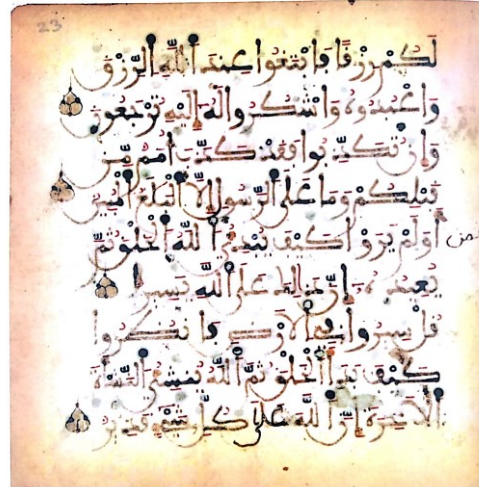 23
لَكُمْ رِزْقًا فَابْتَغُوا عِندَ اَللَّهِ اِلرِّزْقَ
وَاعْبُدُوهُ وَاشْكُرُوا لَهُ إِلَيْهِ تُرْجَعُونَ
وَإِن تُكَذِّبُوا فَقَدْ كَذَّبَ أُمَمٌ مِّن
قَبْلِكُمْ وَمَا عَلَى اَلرَّسُولِ إِلَّا اَلْبَلَٰغُ اُلْمُبِينُ
أَوَلَمْ يَرَوْا كَيْفَ يُبْدِئُ اُللَّهُ اُلْخَلْقَ ثُمَّ
ثمن
يُعِيدُهُ إِنَّ ذَٰلِكَ عَلَى اَللَّهِ يَسِيرٌ
قُلْ سِيرُوا فِي اِلْأَرْضِ فَانظُرُوا
كَيْفَ بَدَأَ اَلْخَلْقَ ثُمَّ اَللَّهُ يُنشِئُ اُلنَّشْأَةَ
اَلْأَخِرَةَ إِنَّ اَللَّهَ عَلَىٰ كُلِّ شَيْءٍ قَدِيرٌ